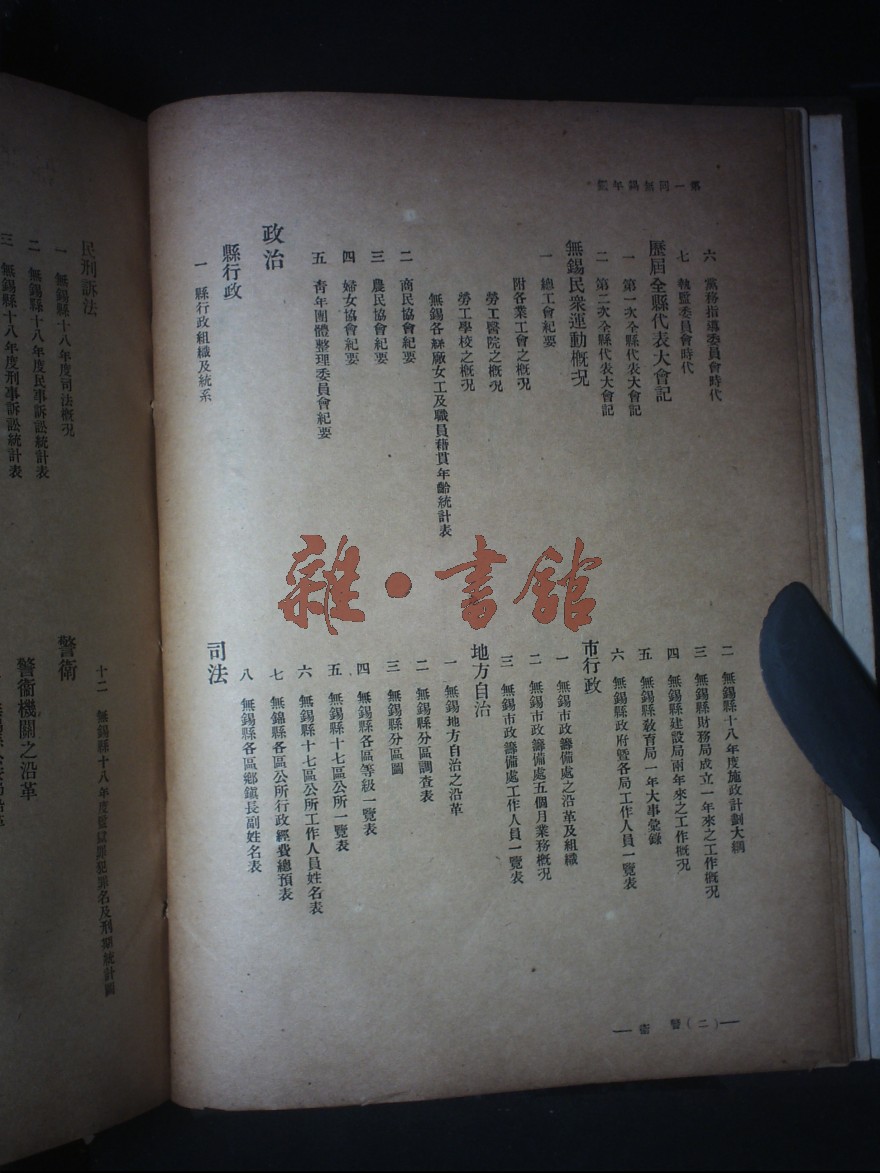 第一回無錫年鑑
六　黨務指導委員會時代
七　執監委員會時代
歷屆全縣代表大會記
一　第一次全縣代表大會記
二　第二次全縣代表大會記
無錫民衆運動概况
一　總工會紀要
附各業工會之概况
勞工醫院之概况
勞工學校之概况
無錫各絲廠女工及職員藉貫年齡統計表
二　商民協會紀要
三　農民協會紀要
四　婦女協會紀要
五　靑年團體整理委員會紀要
政治
縣行政
一　縣行政組織及統系
二　無錫縣十八年度施政計劃大綱
三　無錫縣財務局成立一年來之工作概况
四　無錫縣建設局兩年來之工作概况
五　無錫縣敎育局一年大事彙錄
六　無錫縣政府暨各局工作人員一覽表
市行政
一　無錫市政籌備處之沿革及組織
二　無錫市政籌備處五個月業務概况
三　無錫市政籌備處工作人員一覽表
地方自治
一　無錫地方自治之沿革
二　無錫縣分區調查表
三　無錫縣分區圖
四　無錫縣各區等級一覽表
五　無錫縣十七區公所一覽表
六　無錫縣十七區公所工作人員姓名表
七　無錫縣各區公所行政經費總預表
八　無錫縣各區鄉鎭長副姓名表
司法
雜·書館
民刑訴法
一　無錫縣十八年度司法概况
二　無錫縣十八年度民事訴訟統計表
三　無錫縣十八年度刑事訴訟統計表
十二　無錫縣十八年度監獄罪犯罪名及刑期統計圖
警衛
警衛機關之沿革